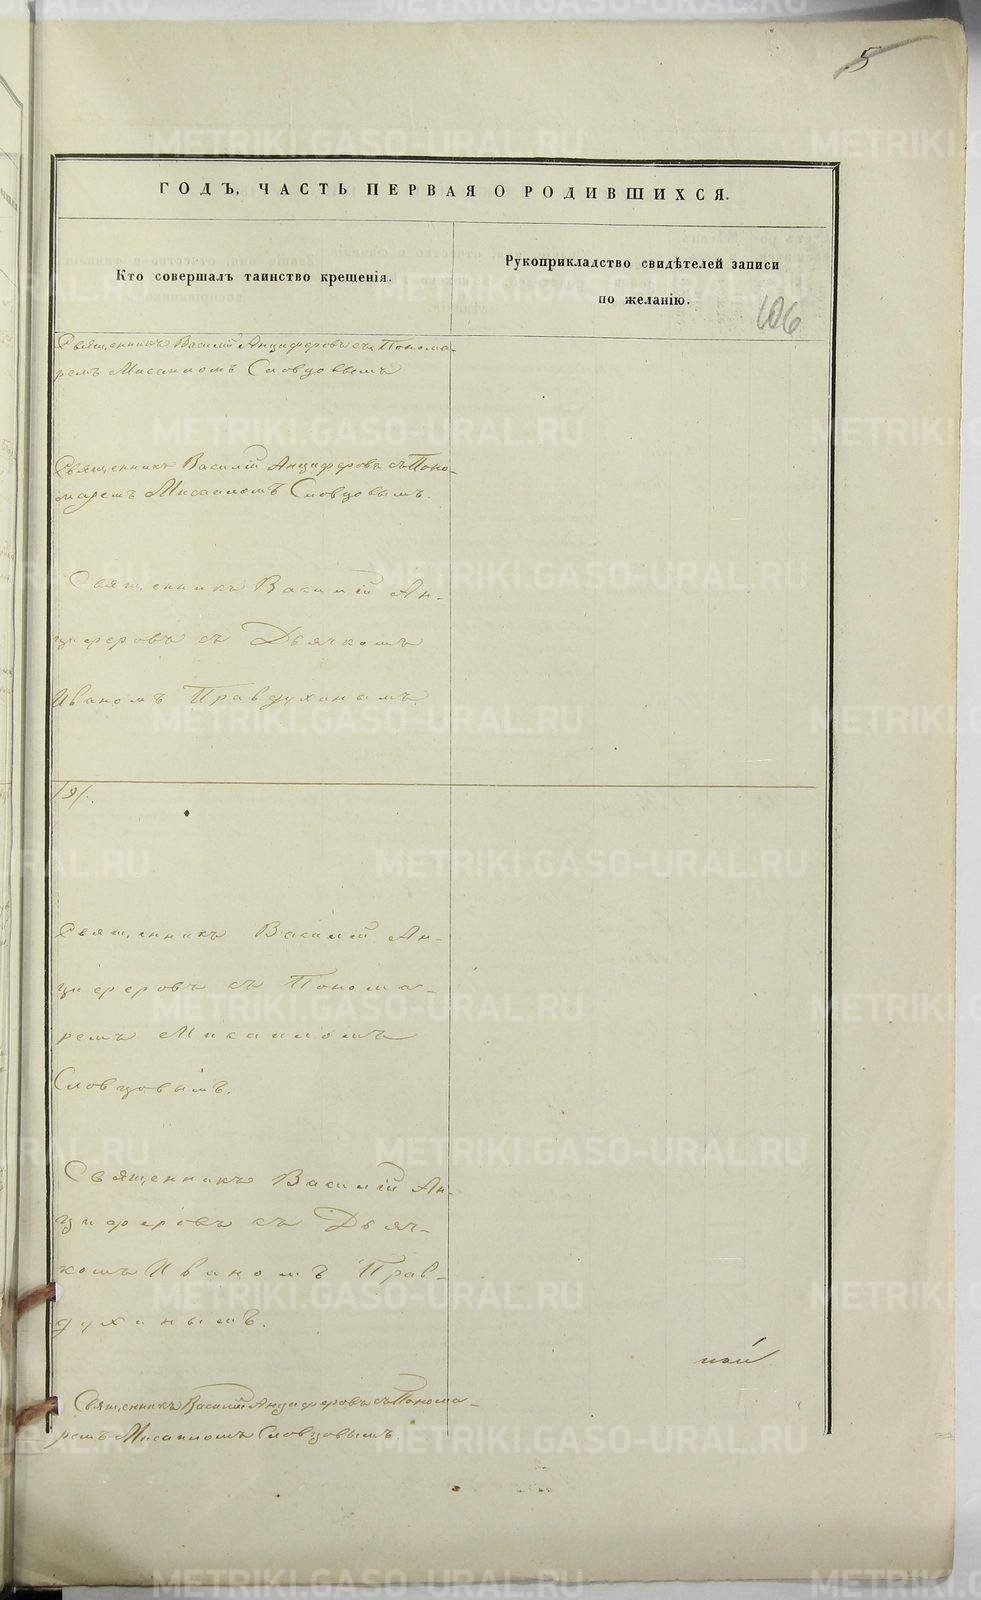 5
ГОДЪ, ЧАСТЬ ПЕРВАЯ О РОДИВШИХСЯ.
Кто совершалъ таинство крещенія.
Рукоприкладство свидѣтелей записи
по желанію.
106
Священникъ Василій Анциферовъ съ Понома-
ремъ Мисаиломъ Словцовымъ
Священникъ Василій Анциферовъ съ Поно-
маремъ Мисаиломъ Словцовымъ.
Священникъ Василій Ан-
циферовъ съ Дьячкомъ
Иваномъ Правдухинымъ.
Священникъ Василій Ан-
циферовъ съ Понома-
ремъ Мисаиломъ
Словцовымъ.
Священникъ Василій Ан-
циферовъ съ Дьяч-
комъ Иваномъ Прав-
духинымъ.
Священникъ Василій Анциферовъ съ Понома-
ремъ Мисаиломъ Словцовымъ.
METRIKI.GASO-URAL.RU